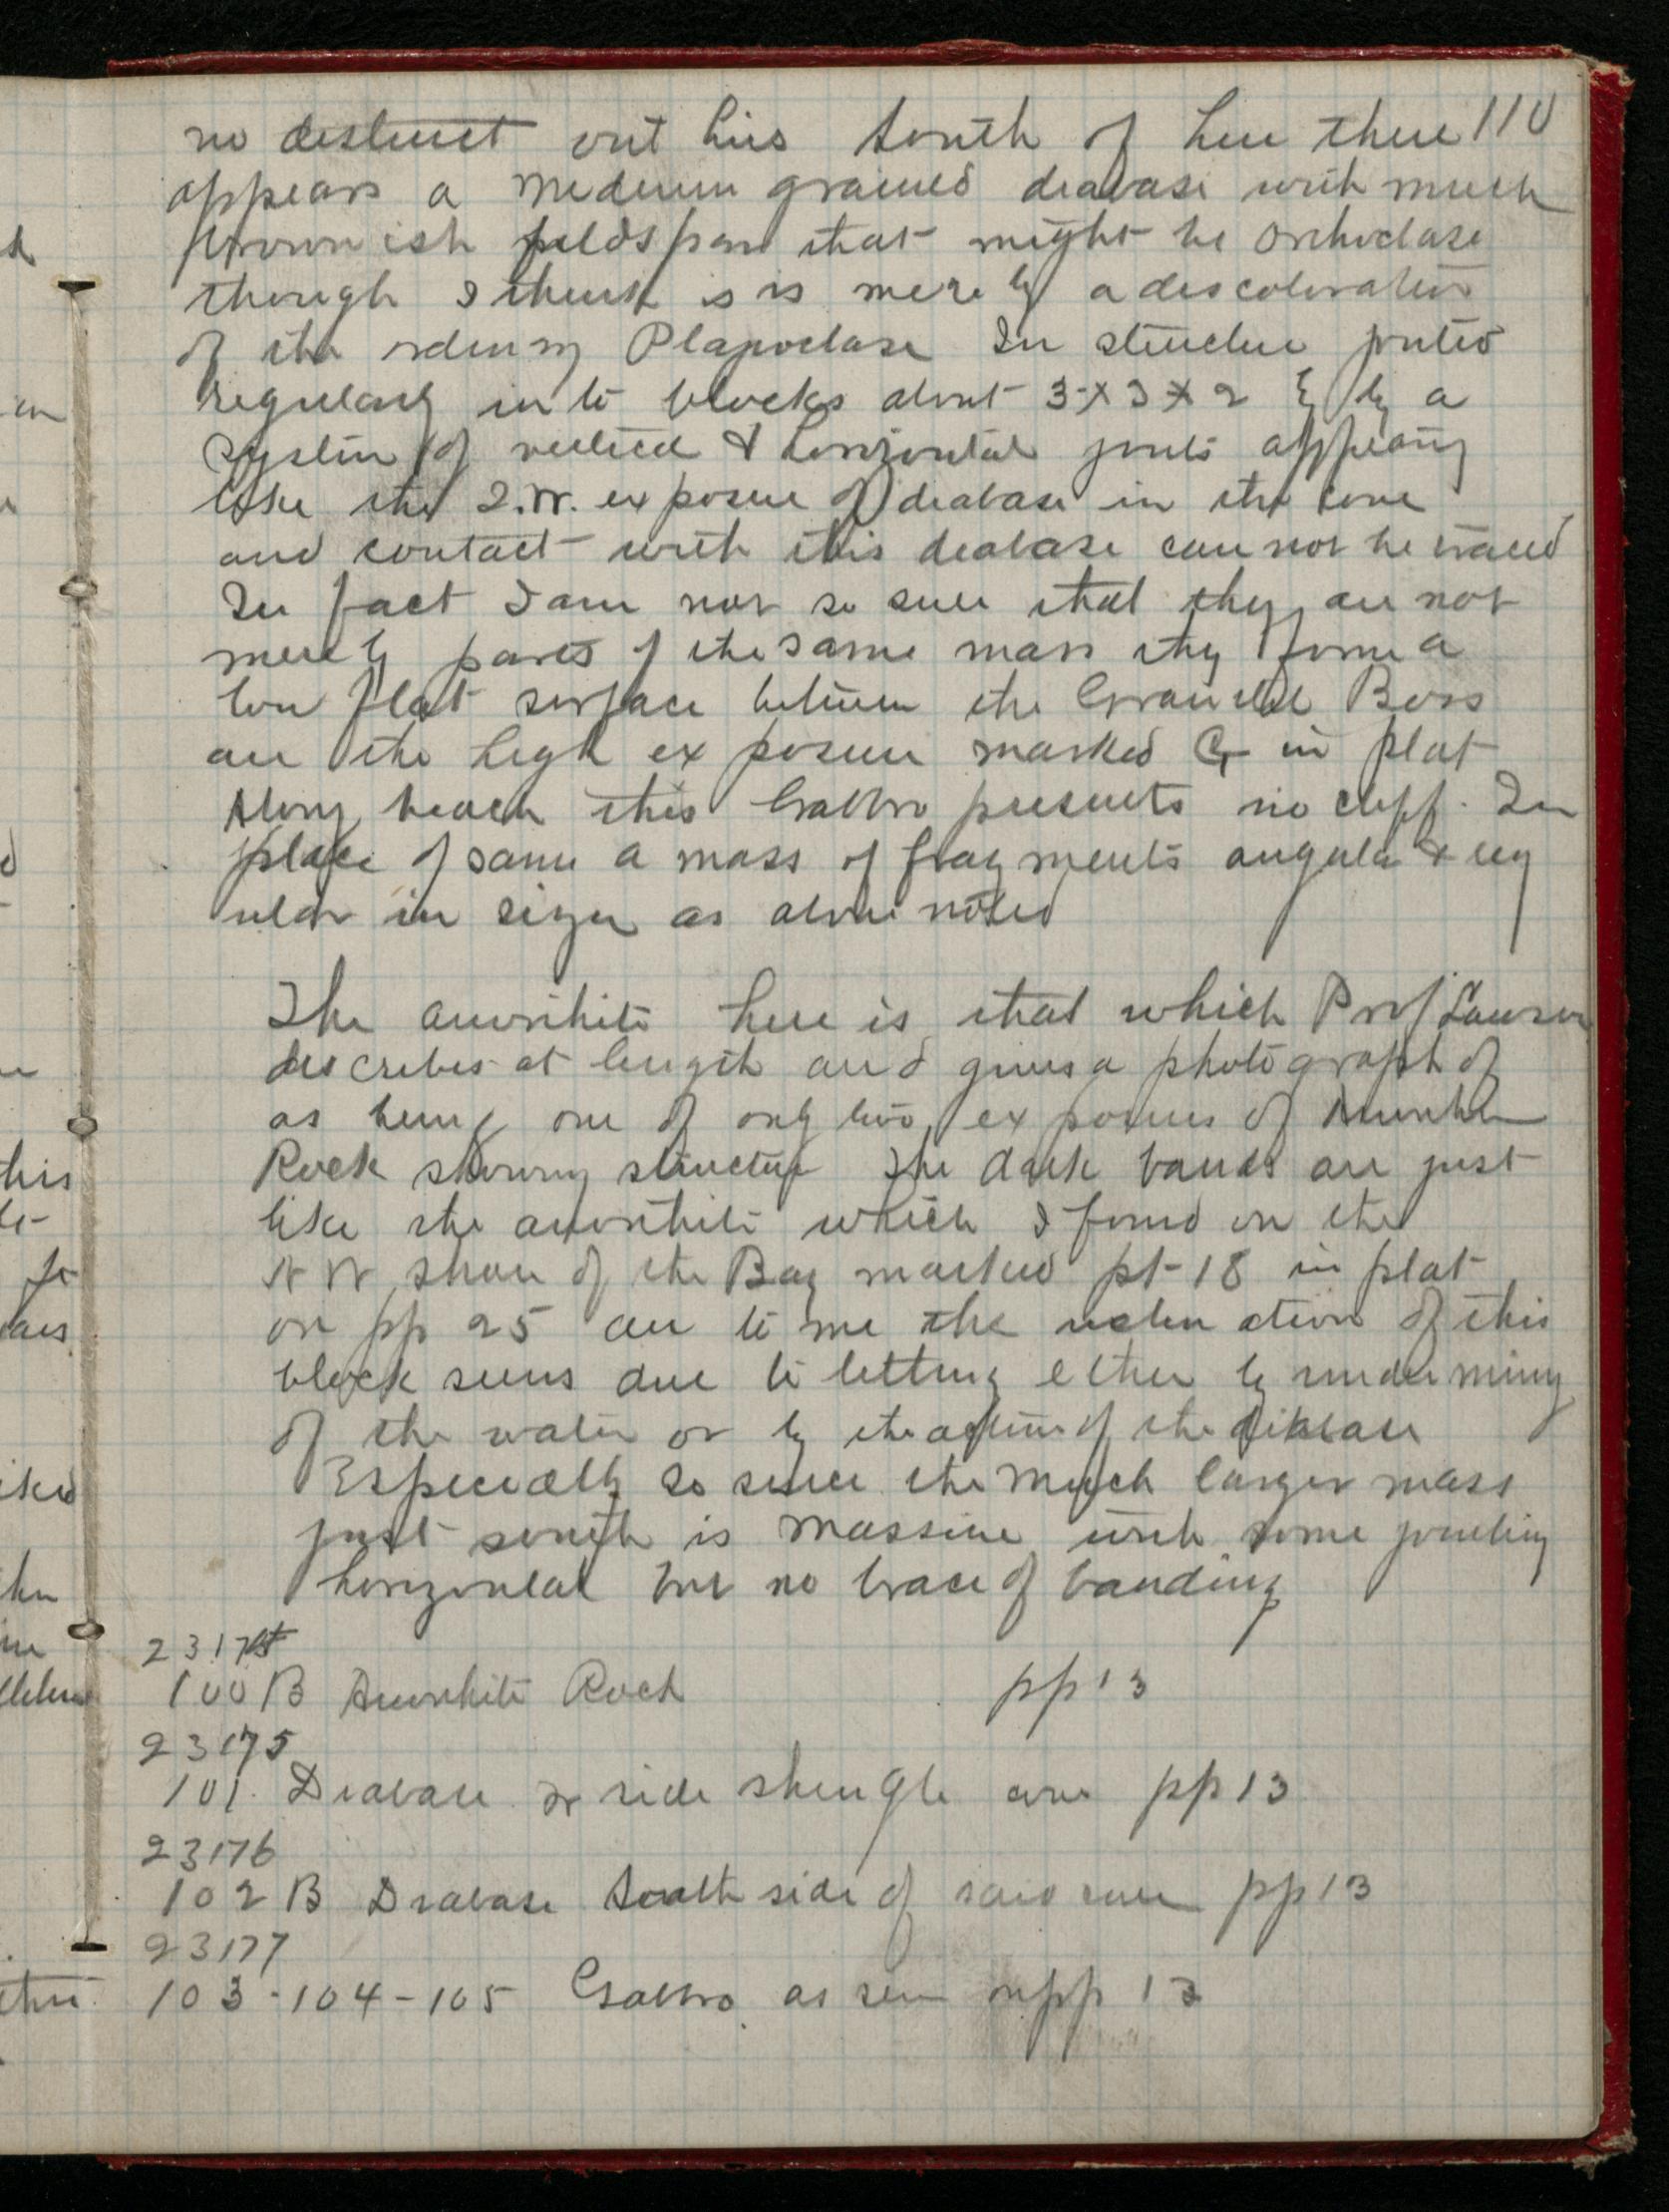 no distinct out lins South of here there 110
appears a medium grained diabase with much
brownish feldspar that might be Orthoclase
though I think is is merely a discoloration
of the ordinary Plagioclase In structure jointed
regularly into blocks about 3×3×2 by a
system of vertical & horizontal joints appearing
like the S.W. exposure of diabase in the cove
and contact with this diabase can not be traced
In fact I am not so sure that they are not
merely parts of the same mass they form a
low flat surface between the Boss
are the high exposure marked G in plat
Along beach this Gabbro presents no cliff. In
place of same a mass of fragments angular & reg
ular in size as above noted
The anorthite here is that which Prof Lawson
describes at length and gives a photograph of
as being one of only two exposures of Anorthite
Rock showing structure The dark bands are just
like the anorthite which I found on the
N W shore of the Bay marked pt 18 in plat
on pp 25 are to me the of this
block seems due to letting either by undermining
of the water or by the action of the diabase
Especially so since the much larger mass
just south is massive with some jointing
horizontal but no trace of banding
2317
100 B Anorthite Rock pp 13
23175
101. Diabase side shingle pp 13
23176
102 B Diabase South side of said cove pp 13
23177
103-104-105 Gabbro as seen on pp 13